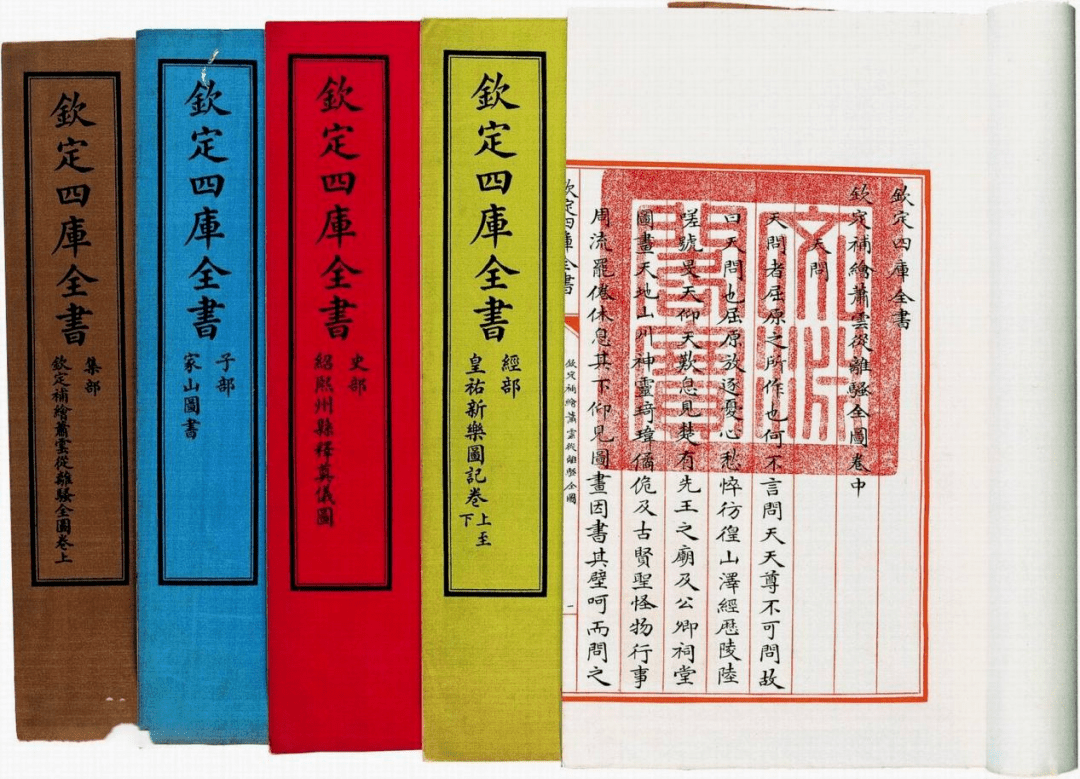 欽定四庫全書
欽定補繪蕭雲從離騷全圖卷中
天問
天問者屈原之所作也何不言問天天尊不可問故
曰天問也屈原放逐憂心愁悴彷徨山澤經歷陵陸
嗟號旻天仰天歎息見楚有先王之廟及公卿祠堂
圖畫天地山川神靈琦瑋僪佹及古賢聖怪物行事
周流罷倦休息其下仰見圖畫因書其壁呵而問之
文淵
閣寶
欽定四庫全書
欽定補繪蕭雲從離騷全圖
一
欽定四庫全書
經部
皇祐新樂圖記卷上至下
欽定四庫全書
史部
紹熙州縣釋奠儀圖
欽定四庫全書
子部
家山圖書
欽定四庫全書
集部
欽定補繪蕭雲從離騷全圖卷上